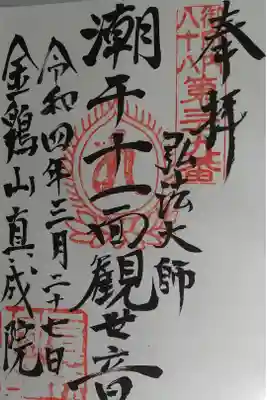 奉拝
御府内
八十八第三十九番
弘法大師
潮干十一面観世音
令和四年三月二十七日
金鶏山真成院